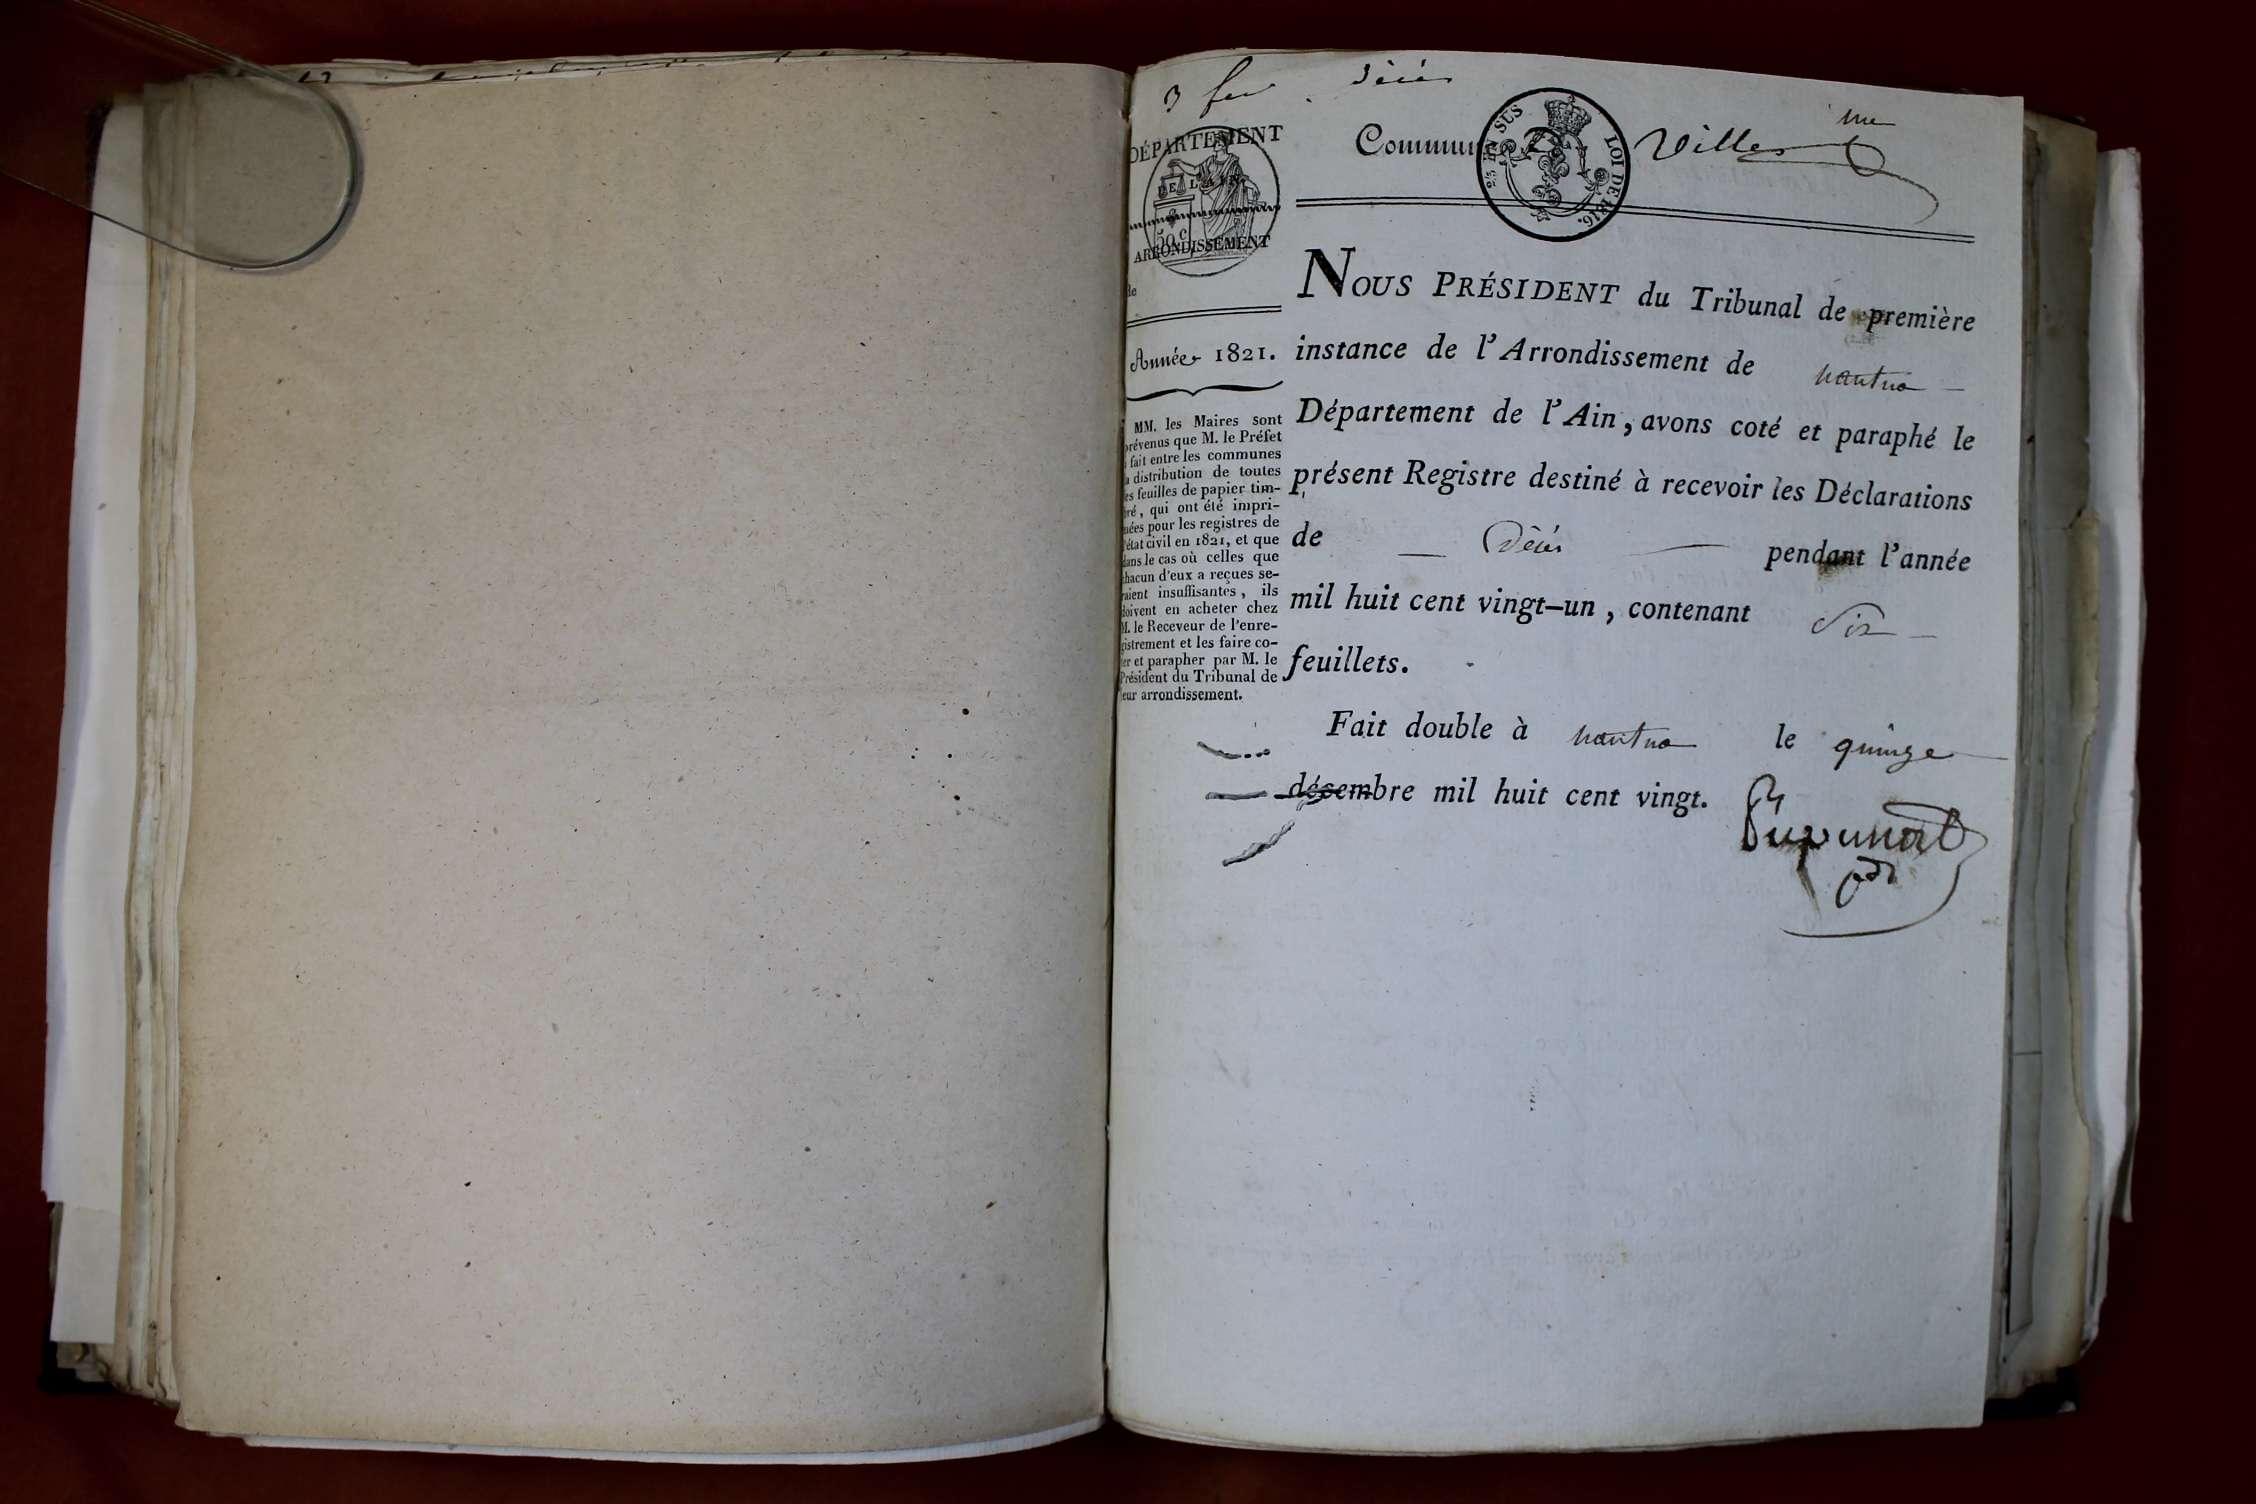 3 feu
Décès
Commune
Villes
DÉPARTEMENT
DE L'AIN
50 c
ARRONDISSEMENT
de
25 EN SUS
LOI DE 1816.
Année 1821.
MM. les Maires sont
prévenus que M. le Préfet
a fait entre les communes
la distribution de toutes
les feuilles de papier tim-
bré, qui ont été impri-
mées pour les registres de
l'état civil en 1821, et que
dans le cas où celles que
chacun d'eux a reçues se-
raient insuffisantes, ils
doivent en acheter chez
M. le Receveur de l'enre-
gistrement et les faire co-
ter et parapher par M. le
Président du Tribunal de
leur arrondissement.
NOUS PRÉSIDENT du Tribunal de première
instance de l'Arrondissement de nantua
Département de l'Ain, avons coté et paraphé le
présent Registre destiné à recevoir les Déclarations
de Décés pendant l'année
mil huit cent vingt-un, contenant Six
feuillets.
Fait double à nantua le quinze
décembre mil huit cent vingt.